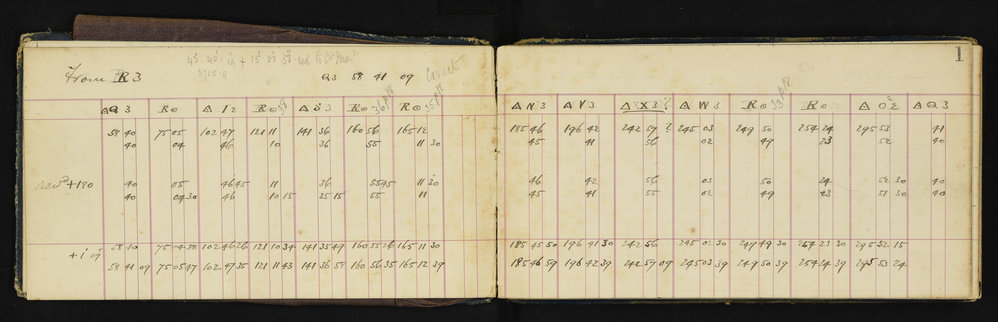 1
From R 3
Q3 58 41 09 Correct
Δ Q 3 R⊙ Δ I 2 R⊙ Δ S 3 R⊙ R⊙ Δ N 3 Δ V 3 Δ X 3 ? Δ W 3 R⊙ R⊙ Δ O 2 Δ Q 3
58 40 75 05 102 47 121 11 141 36 160 56 165 12 185 46 196 42 242 57 ? 245 03 249 50 254 24 295 53 41
40 04 46 10 36 55 11 30 45 41 56 02 49 23 52 40
+180 40 05 46 45 11 36 55 45 11 30 46 42 56 03 50 24 52 30 40
40 04 30 46 10 15 35 15 55 11 45 41 55 02 49 23 51 30 40
58 40 75 04 38 102 46 26 121 10 34 141 35 49 160 55 26 165 11 30 185 45 50 196 41 30 242 56 245 02 30 249 49 30 254 23 30 295 52 15
+ 1 09
58 41 09 75 05 47 102 47 35 121 11 43 141 36 58 160 56 35 165 12 39 185 46 59 196 42 39 242 57 09 245 03 39 249 50 39 254 24 39 295 53 24